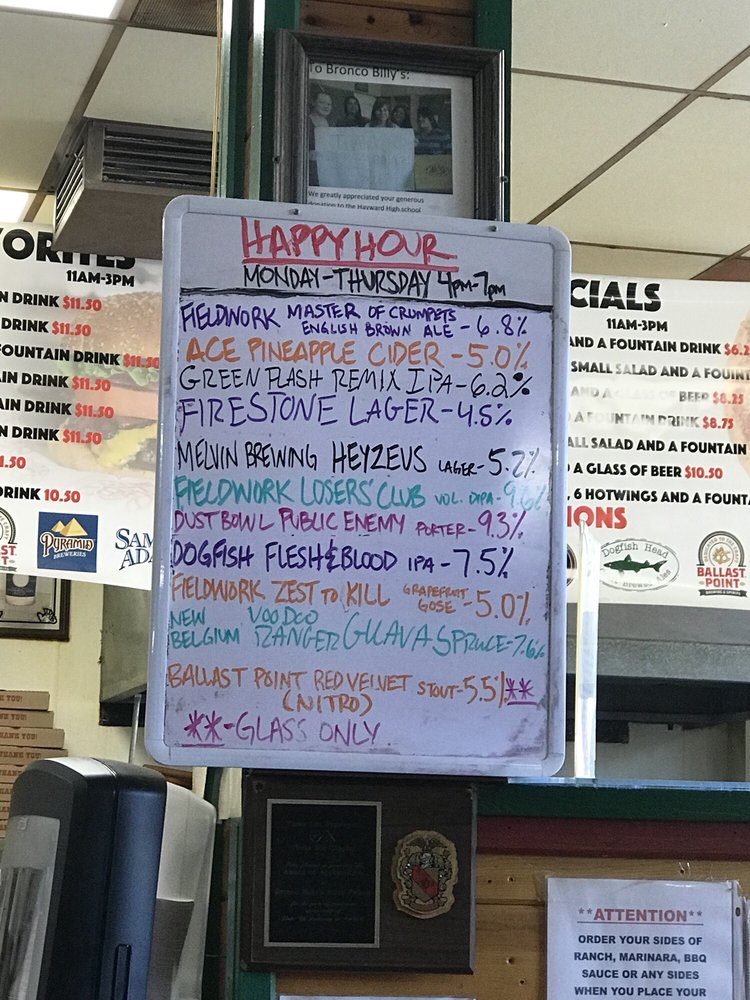 To Bronco Billy's:
We greatly appreciated your generous
donation to the Hayward High school
HAPPY HOUR
MONDAY-THURSDAY 4pm-7pm
FIELDWORK MASTER OF CRUMPETS
ENGLISH BROWN ALE - 6.8%
ACE PINEAPPLE CIDER - 5.0%
GREEN FLASH REMIX IPA - 6.2%
FIRESTONE LAGER - 4.5%
MELVIN BREWING HEYZEUS LAGER - 5.2%
FIELDWORK LOSERS' CLUB VOL. DIPA - 9.6%
DUST BOWL PUBLIC ENEMY PORTER - 9.3%
DOGFISH FLESH & BLOOD IPA - 7.5%
FIELDWORK ZEST TO KILL GRAPEFRUIT
GOSE - 5.0%
NEW BELGIUM VOODOO RANGER GUAVA SPRUCE - 7.6%
BALLAST POINT RED VELVET STOUT - 5.5% **
(NITRO)
** - GLASS ONLY
ORITES
11AM-3PM
N DRINK $11.50
DRINK $11.50
OUNTAIN DRINK $11.50
AIN DRINK $11.50
AIN DRINK $11.50
N DRINK $11.50
1.50
DRINK 10.50
PYRAMID
BREWERIES
SAM
ADA
CIALS
11AM-3PM
AND A FOUNTAIN DRINK $6.2
SMALL SALAD AND A FOUNT
AND A GLASS OF BEER $8.25
A FOUNTAIN DRINK $8.75
ALL SALAD AND A FOUNTAIN
D A GLASS OF BEER $10.50
, 6 HOTWINGS AND A FOUNTA
IONS
Dogfish Head
BALLAST
POINT
THANK YOU!
**ATTENTION**
ORDER YOUR SIDES OF
RANCH, MARINARA, BBQ
SAUCE OR ANY SIDES
WHEN YOU PLACE YOUR